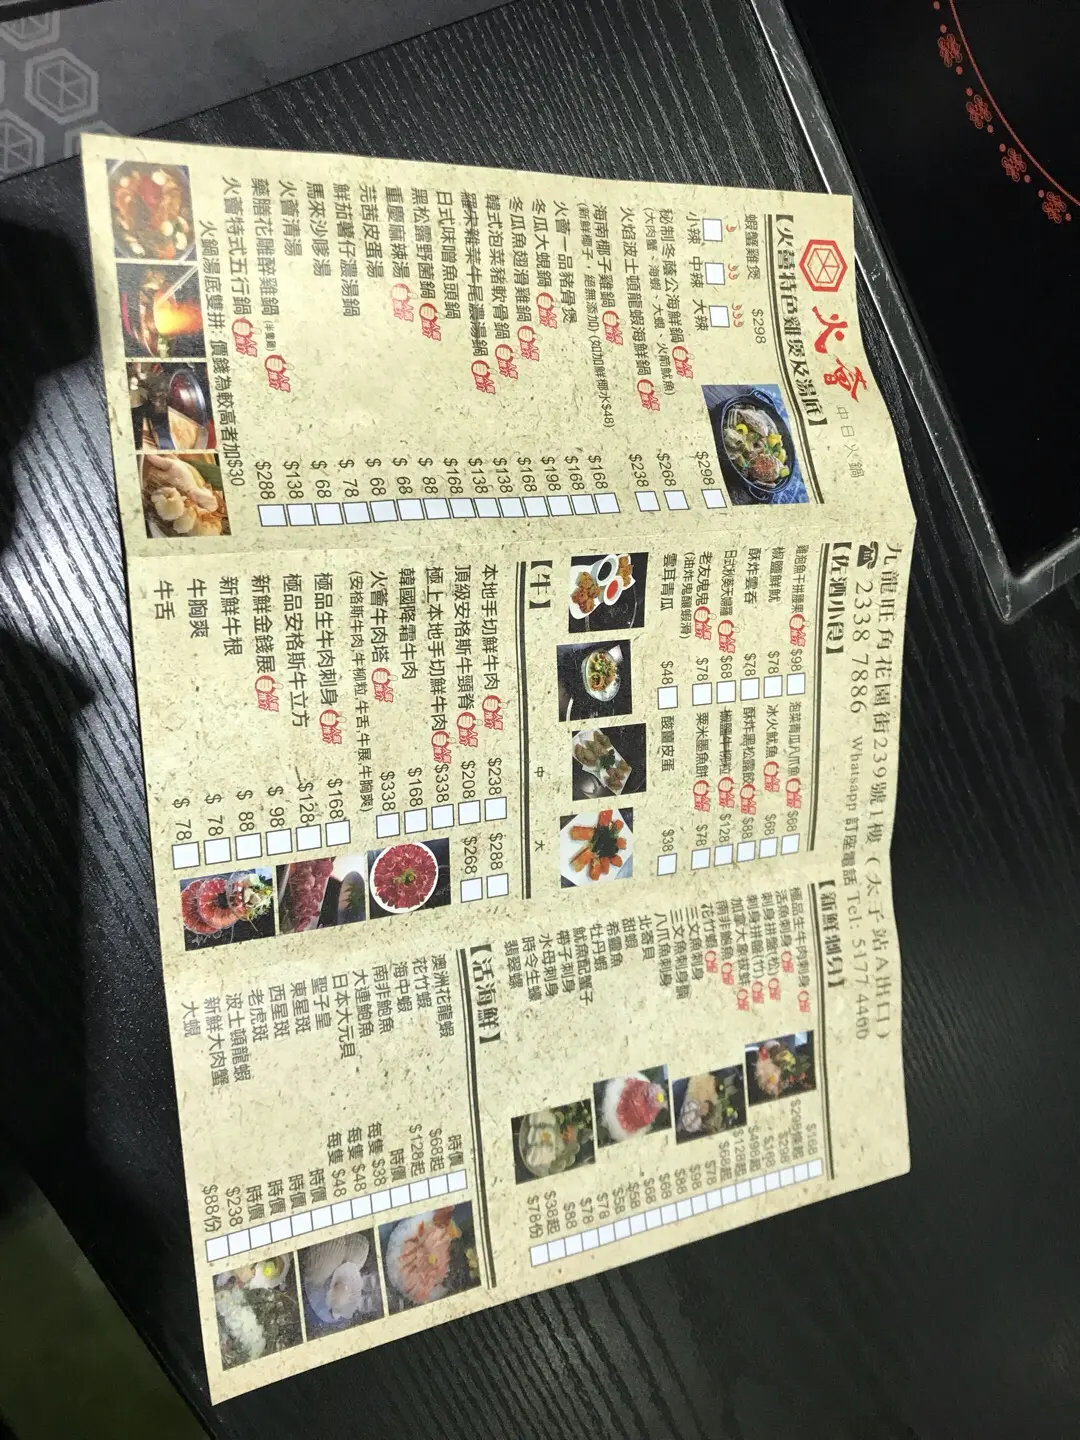 火薈 中日火鍋
九龍旺角花園街239號1樓(太子站A出口)
☎ 2338 7886 Whatsapp 訂座電話 Tel: 5177 4460
【火薈特色雞煲及湯底】
蝦蟹雞煲 $298
小辣 中辣 大辣
$298
秘制冬蔭公海鮮鍋 $268
(大肉蟹、海蝦、大蜆、火箭魷魚)
火焰波士頓龍蝦海鮮鍋 $238
海南椰子雞鍋 $168
(新鮮椰子,絕無添加)(如加鮮椰水$48)
火薈一品豬骨煲 $168
冬瓜大蜆鍋 $198
冬瓜魚翅滑雞鍋 $168
韓式泡菜豬軟骨鍋 $138
羅宋雜菜牛尾濃湯鍋 $138
日式味噌魚頭鍋 $168
黑松露野菌鍋 $ 88
重慶麻辣湯 $ 68
芫茜皮蛋湯 $ 68
鮮茄薯仔濃湯鍋 $ 78
馬來沙嗲湯 $ 68
火薈清湯
藥膳花雕醉雞鍋 $138
火薈特式五行鍋 $288
火鍋湯底雙拼:價錢為較高者加$30
【佐酒小食】
$98 泡菜青瓜八爪魚 $68
椒鹽鮮魷 $78 冰火魷魚 $68
酥炸雲吞 $78 酥炸黑松露餃 $88
$68 椒鹽牛柳粒 $128
老友鬼鬼 $78 粟米墨魚餅 $78
(油炸鬼釀蝦滑)
雲耳青瓜 $48 酸薑皮蛋 $38
【牛】
中 大
本地手切鮮牛肉 $238 $288
頂級安格斯牛頸脊 $208 $268
極上本地手切鮮牛肉 $338
韓國降霜牛肉 $168
火薈牛肉塔 $338
(安格斯牛肉,牛柳粒,牛舌,牛展,牛胸爽)
極品生牛肉刺身 $168
極品安格斯牛立方 $128
新鮮金錢展 $ 98
新鮮牛根 $ 88
牛胸爽 $ 78
牛舌 $ 78
【新鮮刺身】
極品生牛肉刺身 $168
活魚刺身
刺身拼盤(松) $298
刺身拼盤(竹) $168
加拿大象拔蚌 $498起
南非鮑魚 $128起
花竹蝦 $68起
三文魚刺身 $78
三文魚刺身腩 $98
八爪魚刺身 $88
北寄貝 $68
甜蝦 $68
希靈魚 $58
牡丹蝦 $58
魷魚配蟹子 $78
帶子刺身 $78
水母刺身 $88
時令生蠔 $38起
翡翠螺 $78份
【活海鮮】
澳洲花龍蝦 時價
花竹蝦 $68起
海中蝦 $128起
南非鮑魚 時價
大連鮑魚 每隻 $38
日本大元貝 每隻 $48
聖子皇 每隻 $48
東星斑 時價
西星斑 時價
老虎斑 時價
波士頓龍蝦 時價
新鮮大肉蟹 $238
大蜆 $88份